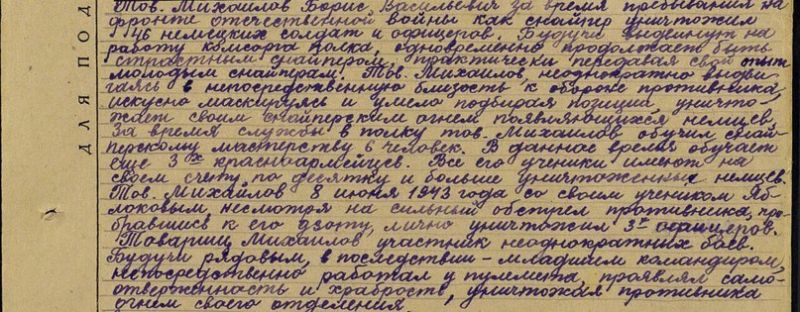 Тов. Михайлов Борис Васильевич за время пребывания на
фронте отечественной войны как снайпер уничтожил
46 немецких солдат и офицеров. Будучи выдвинут на
работу комсорга полка, одновременно продолжает быть
страстным снайпером, практически передавая свой опыт
молодым снайперам. Тов. Михайлов, неоднократно выдви-
гаясь в непосредственную близость к обороне противника,
искусно маскируясь и умело подбирая позиции уничто-
жает своим снайперским огнем появляющихся немцев.
За время службы в полку тов. Михайлов обучил снай-
перскому мастерству 6 человек. В данное время обучает
еще 3х красноармейцев. Все его ученики имеют на
своем счету по десятку и больше уничтоженных немцев.
Тов. Михайлов 8 июня 1943 года со своим учеником Яб-
локовым, несмотря на сильный обстрел противника, про-
бравшись к его дзоту, лично уничтожил 3х офицеров.
Товарищ Михайлов участник неоднократных боев.
Будучи рядовым, в последствии - младшим командиром,
непосредственно работал у пулемета, проявлял само-
отверженность и храбрость, уничтожая противника
огнем своего отделения.
ДЛЯ ПОД